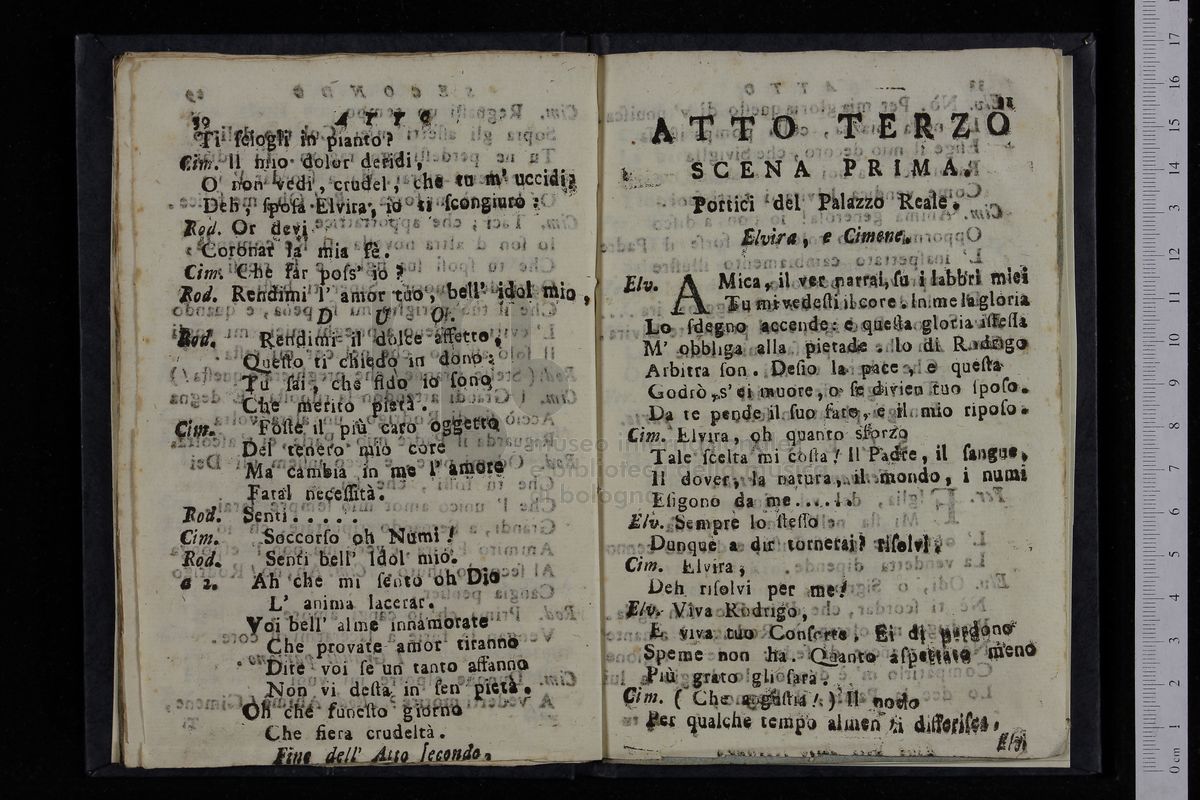 30 ATTO
Ti sciogli in pianto?
Cim. Il mio dolor deridi,
O non vedi, crudel, che tu m' uccidi;
Deh, sposa Elvira, io ti scongiuro:
Rod. Or devi
Coronar la mia fè.
Cim. Che far poss' io?
Rod. Rendimi l' amor tuo, bell' idol mio,
D U O.
Rod. Rendimi il dolce affetto,
Questo ti chiedo in dono:
Tu sai, che fido io sono,
Che merito pietà.
Cim. Foste il più caro oggetto
Del tenero mio core
Ma cambia in me l' amore
Fatal necessità.
Rod. Senti.....
Cim. Soccorso oh Numi!
Rod. Senti bell' Idol mio.
a 2. Ah che mi sento oh Dio
L' anima lacerar.
Voi bell' alme innamorate
Che provate amor tiranno
Dite voi se un tanto affanno
Non vi desta in sen pietà.
Oh che funesto giorno
Che fiera crudeltà.
Fine dell' Atto secondo.
31
ATTO TERZO
SCENA PRIMA.
Portici del Palazzo Reale.
Elvira, e Cimene.
Elv. AMica, il ver narrai, su i labbri miei
Tu mi vedesti il core. In me la gloria
Lo sdegno accende: e questa gloria istessa
M' obbliga alla pietade. Io di Rodrigo
Arbitra son. Desio la pace, e questa
Godrò, s' ei muore, o se divien tuo sposo.
Da te pende il suo fato, e il mio riposo.
Cim. Elvira, oh quanto sforzo
Tale scelta mi costa! Il Padre, il sangue,
Il dover, la natura, il mondo, i numi
Esigono da me.....
Elv. Sempre lo stesso
Dunque a dir tornerai? risolvi.
Cim. Elvira,
Deh risolvi per me!
Elv. Viva Rodrigo,
E viva tuo Consorte. Ei di perdono
Speme non ha. Quanto aspettato meno
Più grato gli sarà.
Cim. (Che angustia!) Il nodo
Per qualche tempo almen si differisca.
Elv.
museo internazionale
e biblioteca della musica
di bologna